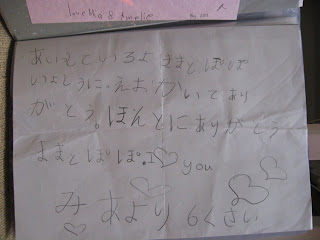 あいしているよ ままとぱぱ
いよとうに、えおかいてあり
がとう。ほんとにありがとう
ままとぱぱ.I♡you
みあより 6くさい